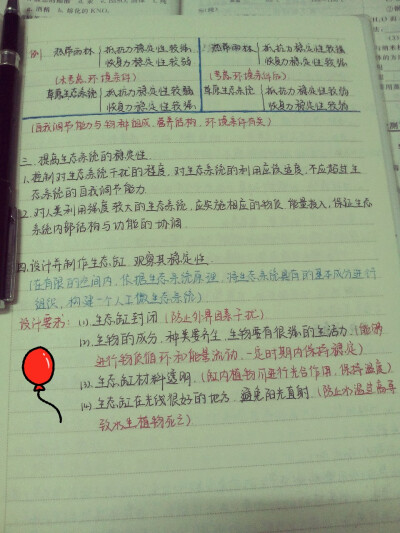 例 热带雨林 抵抗力稳定性较强 热带雨林 抵抗力稳定性较强
恢复力稳定性较弱 恢复力稳定性较强
(未考虑环境条件) (考虑环境条件后)
草原生态系统 抵抗力稳定性较弱 草原生态系统 抵抗力稳定性较弱
恢复力稳定性较强 恢复力稳定性较弱
(自我调节能力与物种组成、营养结构、环境条件有关)
三、提高生态系统的稳定性
1、控制对生态系统干扰的程度,对生态系统的利用应该适度,不应超过生
态系统的自我调节能力
2、对人类利用强度较大的生态系统,应实施相应的物质、能量投入,保证生态
系统内部结构与功能的协调
四、设计并制作生态缸,观察其稳定性
(在有限的空间内,依据生态系统原理,将生态系统具有的基本成分进行
组织,构建一个人工微生态系统)
设计要求:(1)生态缸封闭(防止外界因素干扰)
(2)生物的成分、种类要齐全,生物要有很强的生活力(能够
进行物质循环和能量流动,一定时期内保持稳定)
(3)生态缸材料透明(缸内植物可进行光合作用,保持温度)
(4)生态缸在光线很好的地方,避免阳光直射(防止水温过高导
致水生植物死亡)